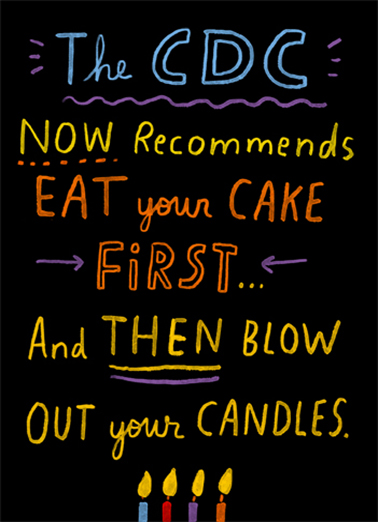 The CDC
NOW Recommends
EAT your CAKE
FiRST...
And THEN BLOW
OUT your CANDLES.